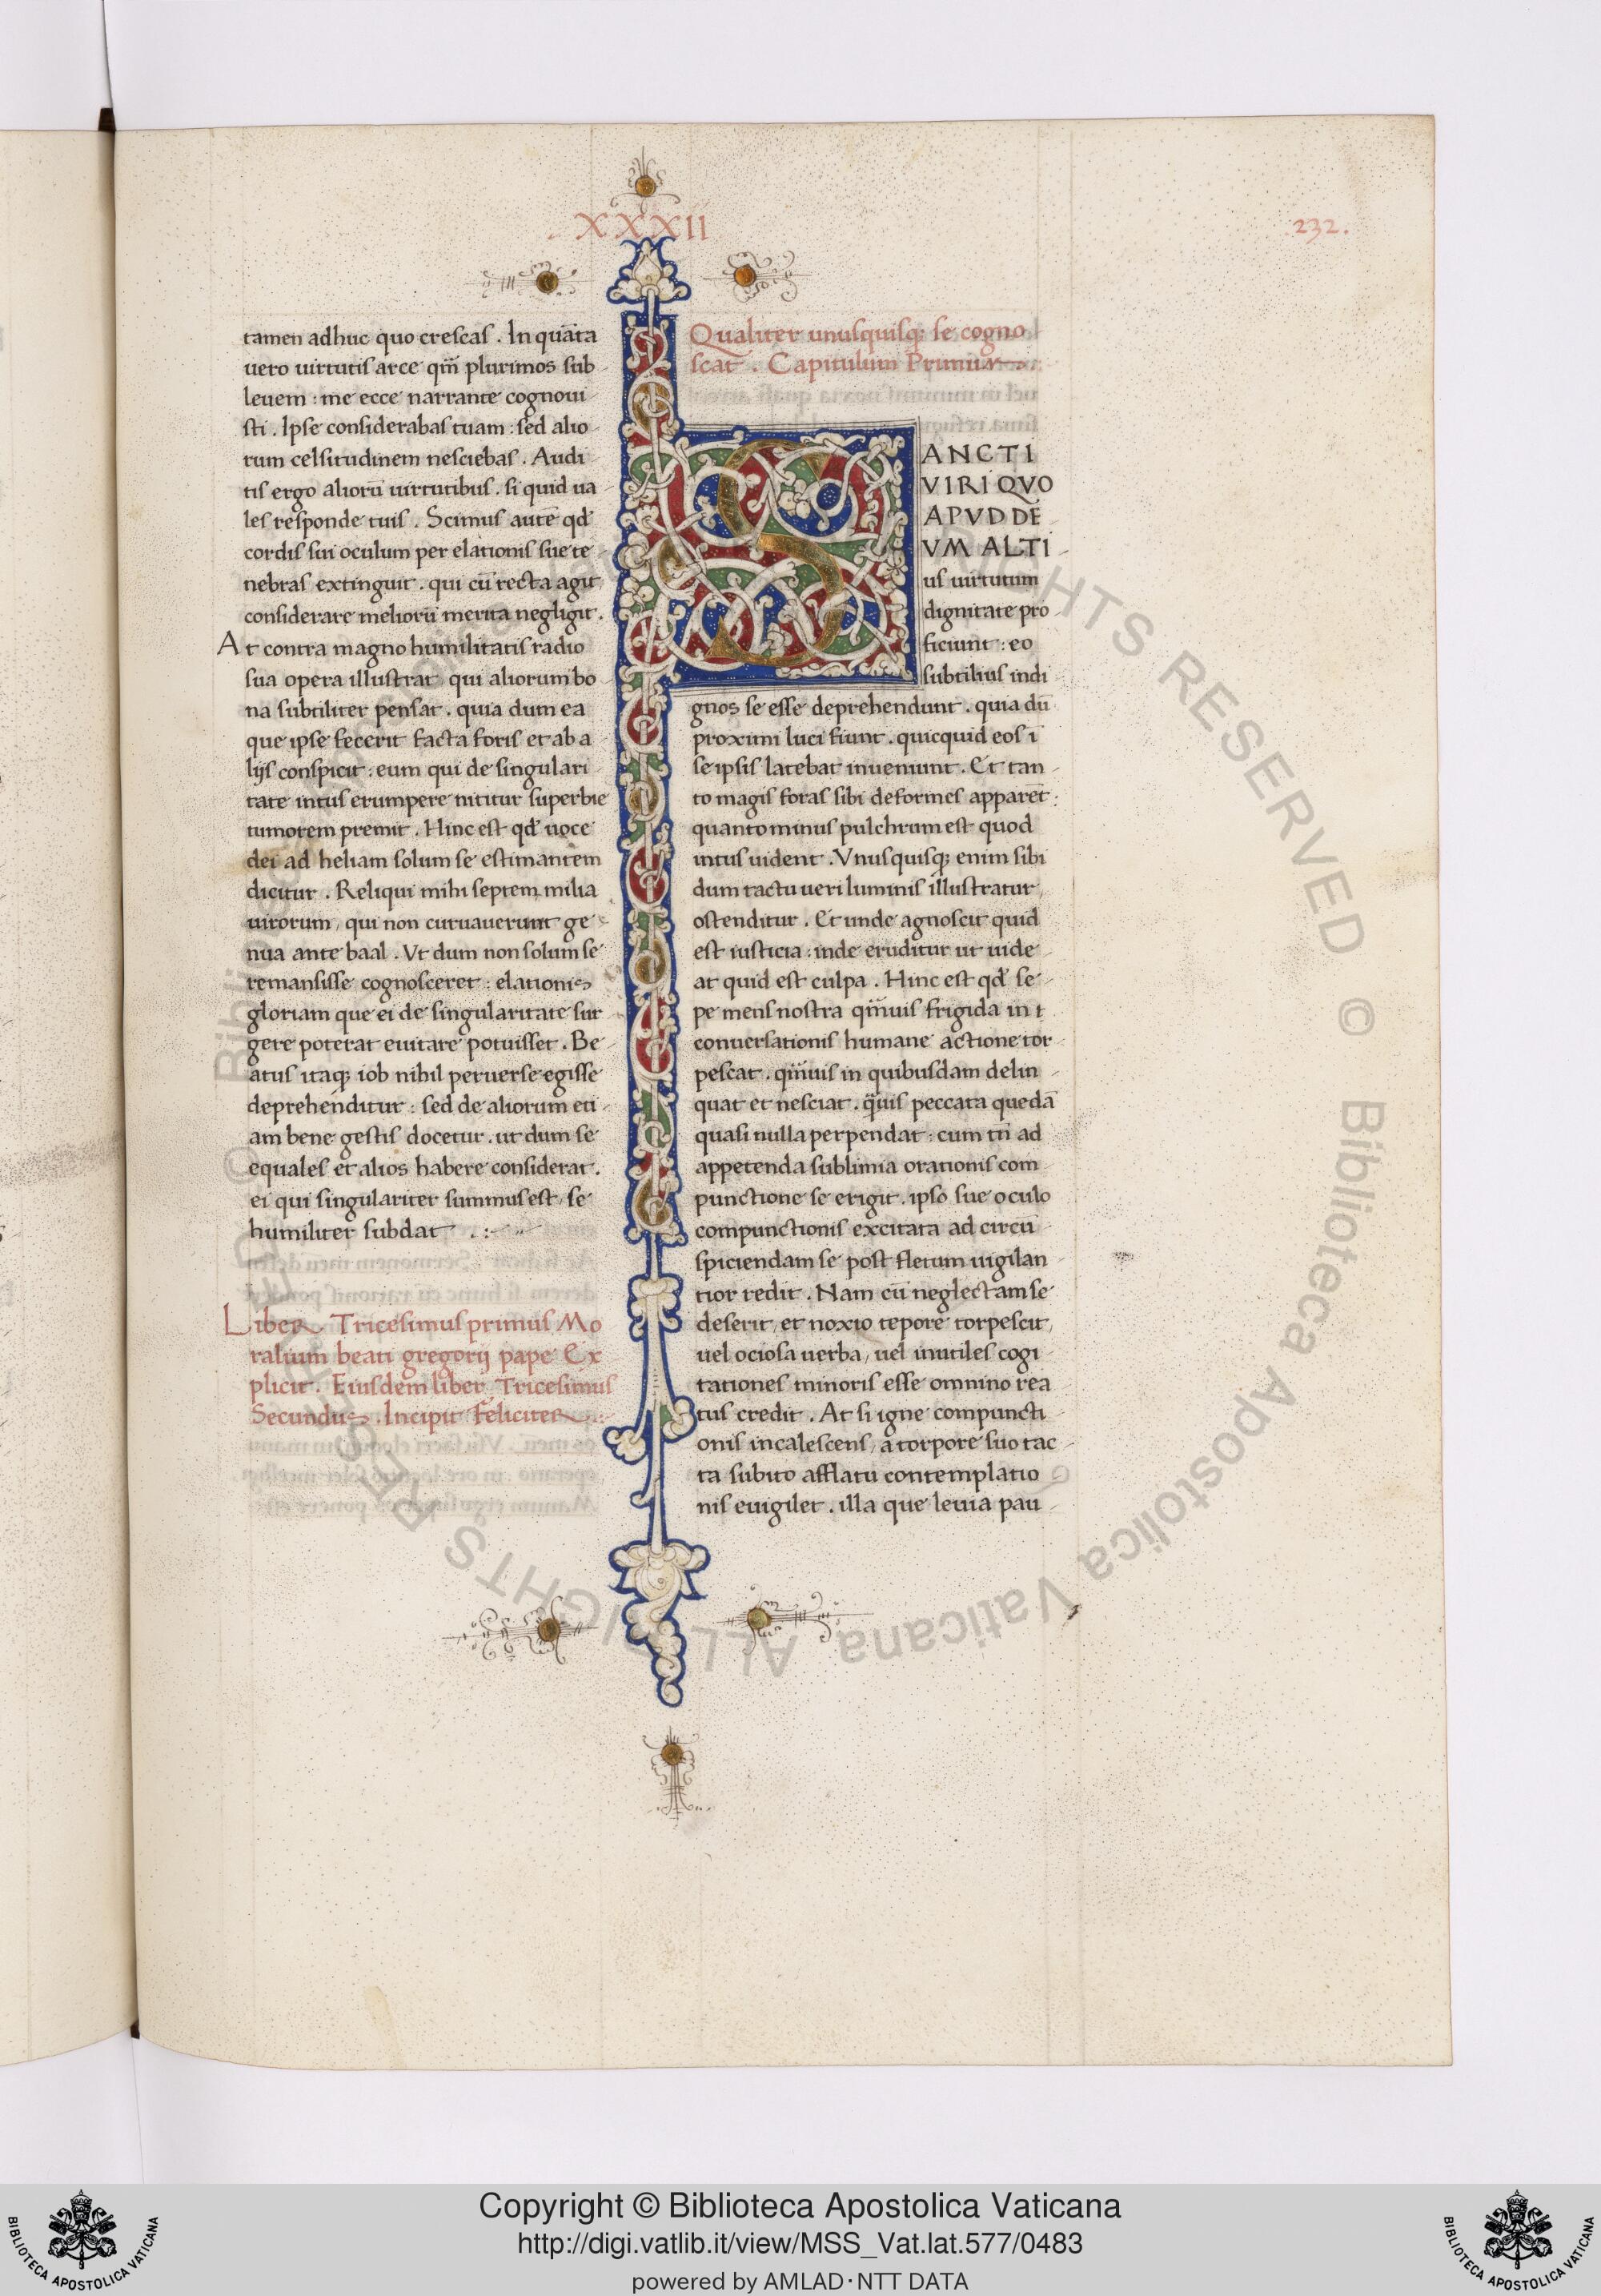 XXXII
232.
tamen adhuc quo crescas . In quāta
uero uirtutis arce qm̄ plurimos sub
leuem : me ecce narrante cognoui
sti . Ipse considerabas tuam : sed alio
rum celsitudinem nesciebas . Audi
tis ergo aliorū uirtutibus . si quid ua
les responde tuis . Scimus autē qd̄
cordis sui oculum per elationis sue te
nebras extinguit . qui cū recta agit
considerare meliorū merita negligit .
At contra magno humilitatis radio
sua opera illustrat qui aliorum bo
na subtiliter pensat . quia dum ea
que ipse fecerit facta foris et ab a
lijs conspicit : eum qui de singulari
tate intus erumpere nititur superbie
tumorem premit . Hinc est qd̄ uoce
dei ad heliam solum se estimantem
dicitur . Reliqui mihi septem milia
uirorum, qui non curuauerunt ge
nua ante baal . Vt dum non solum se
remansisse cognosceret : elationis
gloriam que ei de singularitate sur
gere poterat euitare potuisset . Be
atus itaq; iob nihil peruerse egisse
deprehenditur : sed de aliorum eti
am bene gestis docetur . ut dum se
equales et alios habere considerat .
ei qui singulariter summus est, se
humiliter subdat . : ~
Liber Tricesimus primus Mo
ralium beati gregorij pape Ex
plicit . Eiusdem liber Tricesimus
Secundus . Incipit Feliciter . :
Qualiter unusquisq; se cogno
scat . Capitulum Primum
SANCTI
VIRI QVO
APVD DE
VM ALTI
us uirtutum
dignitate pro
ficiunt : eo
subtilius indi
gnos se esse deprehendunt . quia dū
proximi luci fiunt . quicquid eos ī
se ipsis latebat inueniunt . Et tan
to magis foras sibi deformes apparēt :
quanto minus pulchrum est quod
intus uident . Vnusquisq; enim sibi
dum tactu ueri luminis illustratur,
ostenditur . Et unde agnoscit quid
est iusticia : inde eruditur ut uide
at quid est culpa . Hinc est qd̄ se
pe mens nostra qm̄uis frigida in t
conuersationis humane actione tor
pescat . qm̄uis in quibusdam delin
quat et nesciat . q̄uis peccata quedā
quasi nulla perpendat : cum tn̄ ad
appetenda sublimia orationis com
punctione se erigit . ipso sue oculo
compunctionis excitata ad circū
spiciendam se post fletum uigilan
tior redit . Nam cū neglectam se
deserit, et noxio tepore torpescit,
uel ociosa uerba, uel inutiles cogi
tationes minoris esse omnino rea
tus credit . At si igne compuncti
onis incalescens, a torpore suo tac
ta subito afflatu contemplatio
nis euigilet . illa que leuia pau
Copyright © Biblioteca Apostolica Vaticana
http://digi.vatlib.it/view/MSS_Vat.lat.577/0483
powered by AMLAD·NTT DATA
BIBLIOTECA APOSTOLICA VATICANA
BIBLIOTECA APOSTOLICA VATICANA